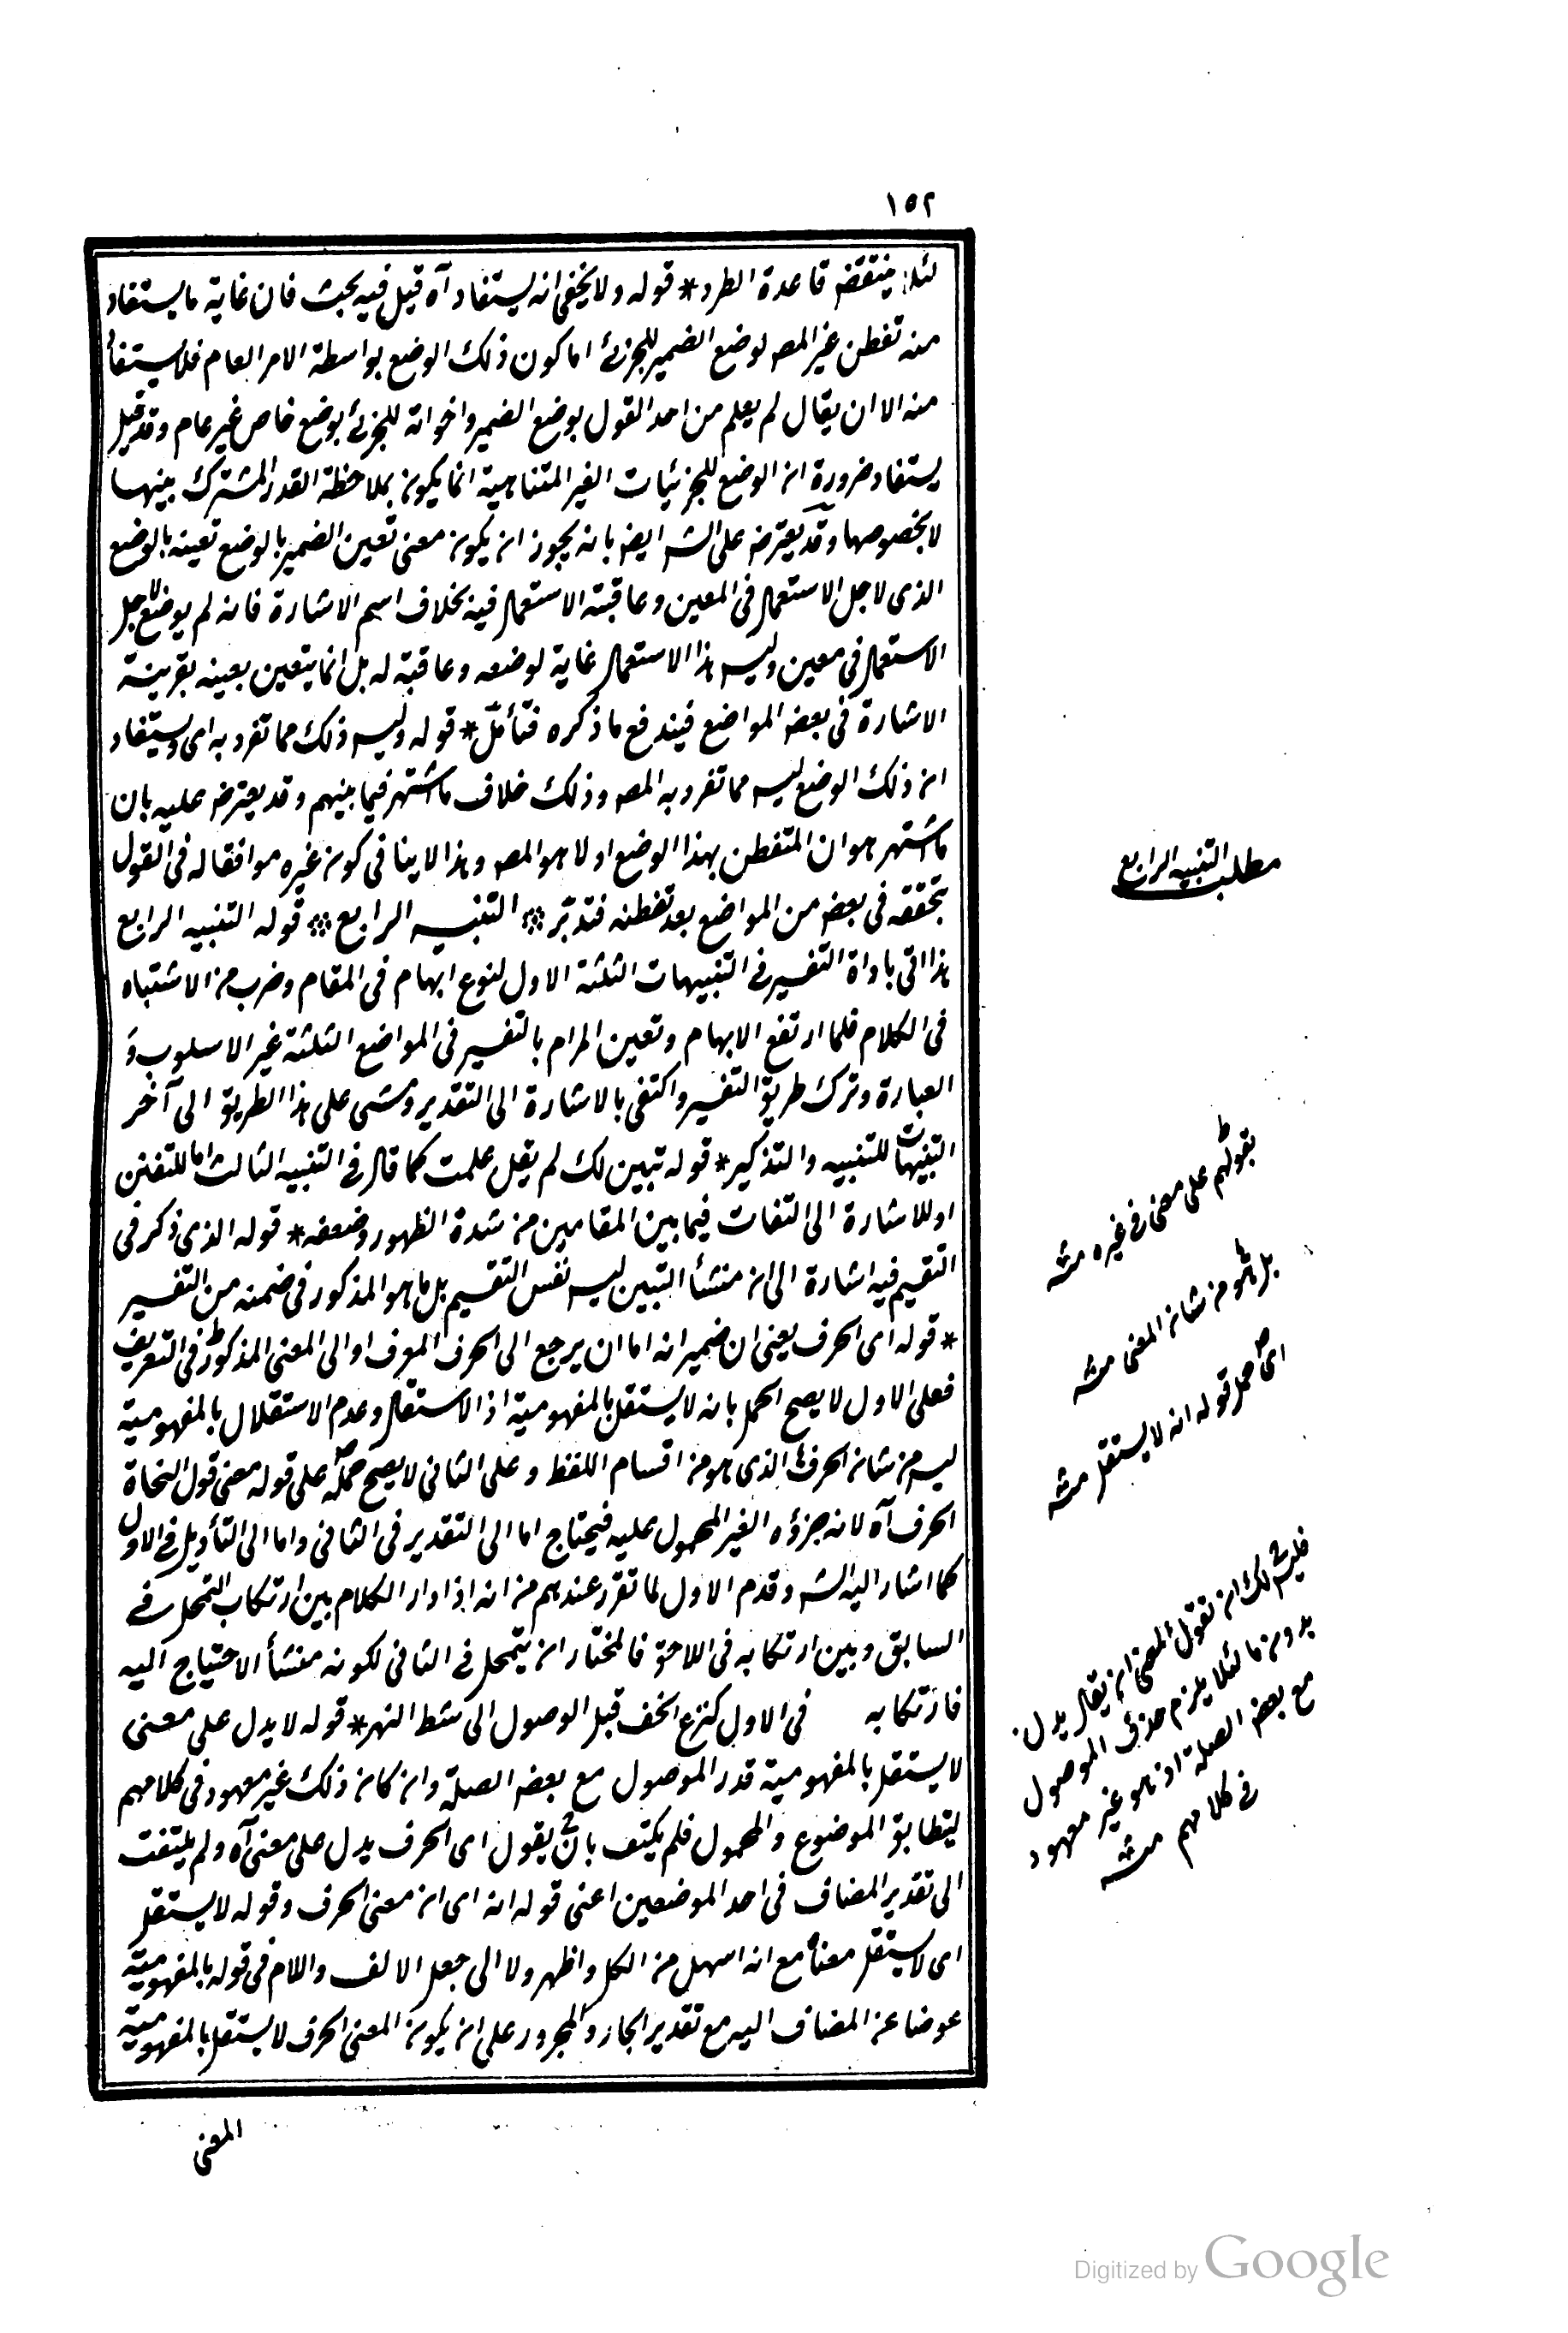 ١٥٢
لئلا ينتقض قاعدة الطرد * قوله ولا يخفى انه يستفاد آه قيل فيه بحث فان غاية ما يستفاد
منه تفطن غير المص لوضع الضمير للجزئى اما كون ذلك الوضع بواسطة الامر العام فلا يستفاد
منه الا ان يقال لم يعلم من احد القول بوضع الضمير واخواته للجزئى بوضع خاص غير عام وقد قيل
يستفاد ضرورة ان الوضع للجزئيات الغير المتناهية انما يكون بملاحظة القدر المشترك بينها
لا بخصوصها وقد يعترض على الشه ايضا بانه يجوز ان يكون معنى تعين الضمير بالوضع تعينه بالوضع
الذى لاجل الاستعمال فى المعين وعاقبته الاستعمال فيه بخلاف اسم الاشارة فانه لم يوضع لاجل
الاستعمال فى معين وليس هذا الاستعمال غاية لوضعه وعاقبة له بل انما يتعين بعينه بقرينة
الاشارة فى بعض المواضع فيندفع ما ذكره فتأمل * قوله وليس ذلك مما تفرد به اى ويستفاد
ان ذلك الوضع ليس مما تفرد به المص وذلك خلاف ما اشتهر فيما بينهم وقد يعترض عليه بان
ما اشتهر هو ان المتفطن بهذا الوضع اولا هو المص وهذا لا ينافى كون غيره موافقا له فى القول
بتحققه فى بعض من المواضع بعد تفطنه فتدبر ※ التنبيه الرابع ※ قوله التنبيه الرابع
هذا اتى باداة التفسير فى التنبيهات الثلثة الاول لنوع ابهام فى المقام وضرب من الاشتباه
فى الكلام فلما ارتفع الابهام وتعين المرام بالتفسير فى المواضع الثلثة غير الاسلوب و
العبارة وترك طريق التفسير واكتفى بالاشارة الى التقدير ومشى على هذا الطريق الى آخر
التنبيهات للتنبيه والتذكير * قوله تبين لك لم يقل علمت كما قال فى التنبيه الثالث اما للتفنن
او للاشارة الى التفات فيما بين المقامين من شدة الظهور وضعفه * قوله الذى ذكر فى
التقسيم فيه اشارة الى ان منشأ التبين ليس نفس التقسيم بل ما هو المذكور فى ضمنه من التفسير
* قوله اى الحرف يعنى ان ضمير انه اما ان يرجع الى الحرف المعرف او الى المعنى المذكور فى التعريف
فعلى الاول لا يصح الحمل بانه لا يستقل بالمفهومية اذ الاستقلال وعدم الاستقلال بالمفهومية
ليس من شان الحرف الذى هو من اقسام اللفظ وعلى الثانى لا يصح حمله على قوله معنى قول النحاة
الحرف آه لانه جزؤه الغير المحمول عليه فيحتاج اما الى التقدير فى الثانى واما الى التأويل فى الاول
كما اشار اليه الشه وقدم الاول لما تقرر عندهم من انه اذا دار الكلام بين ارتكاب التمحل فى
السابق وبين ارتكابه فى اللاحق فالمختار ان يتمحل فى الثانى لكونه منشأ الاحتياج اليه
فارتكابه فى الاول كنزع الخف قبل الوصول الى شط النهر * قوله لا يدل على معنى
لا يستقل بالمفهومية قدر الموصول مع بعض الصلة وان كان ذلك غير معهود فى كلامهم
ليتطابق الموضوع والمحمول فلم يكتف بان يقول اى الحرف يدل على معنى آه ولم يلتفت
الى تقدير المضاف فى احد الموضعين اعنى قوله انه اى ان معنى الحرف وقوله لا يستقل
اى لا يستقل معناه مع انه اسهل من الكل واظهر ولا الى جعل الالف واللام فى قوله بالمفهومية
عوضا عن المضاف اليه مع تقدير الجار والمجرور على ان يكون المعنى الحرف لا يستقل بالمفهومية
المعنى
مطلب التنبيه الرابع
بقولهم على معنى فى غيره منه
بل هو من شان المعنى منه
اى حمل قوله انه لا يستقل منه
لك ان تقول المعنى ان يقال يدل
بدون ما لئلا يلزم حذف الموصول
مع بعض الصلة اذ هو غير معهود
فى كلامهم منه
Digitized by Google